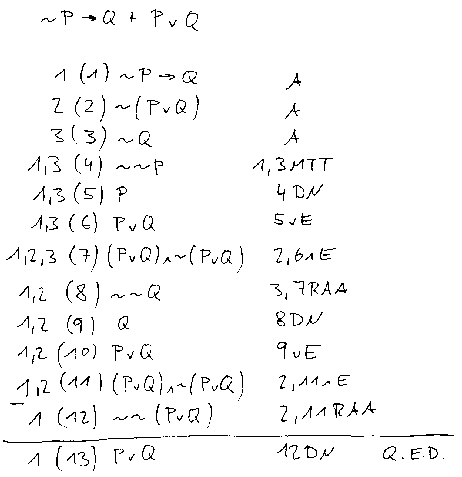 ~P → Q ⊢ P v Q
1 (1) ~P → Q A
2 (2) ~(P v Q) A
3 (3) ~Q A
1,3 (4) ~~P 1,3 MTT
1,3 (5) P 4 DN
1,3 (6) P v Q 5 vE
1,2,3 (7) (P v Q) ∧ ~(P v Q) 2,6 ∧E
1,2 (8) ~~Q 3,7 RAA
1,2 (9) Q 8 DN
1,2 (10) P v Q 9 vE
1,2 (11) (P v Q) ∧ ~(P v Q) 2,11 ∧E
1 (12) ~~(P v Q) 2,11 RAA
1 (13) P v Q 12 DN Q.E.D.